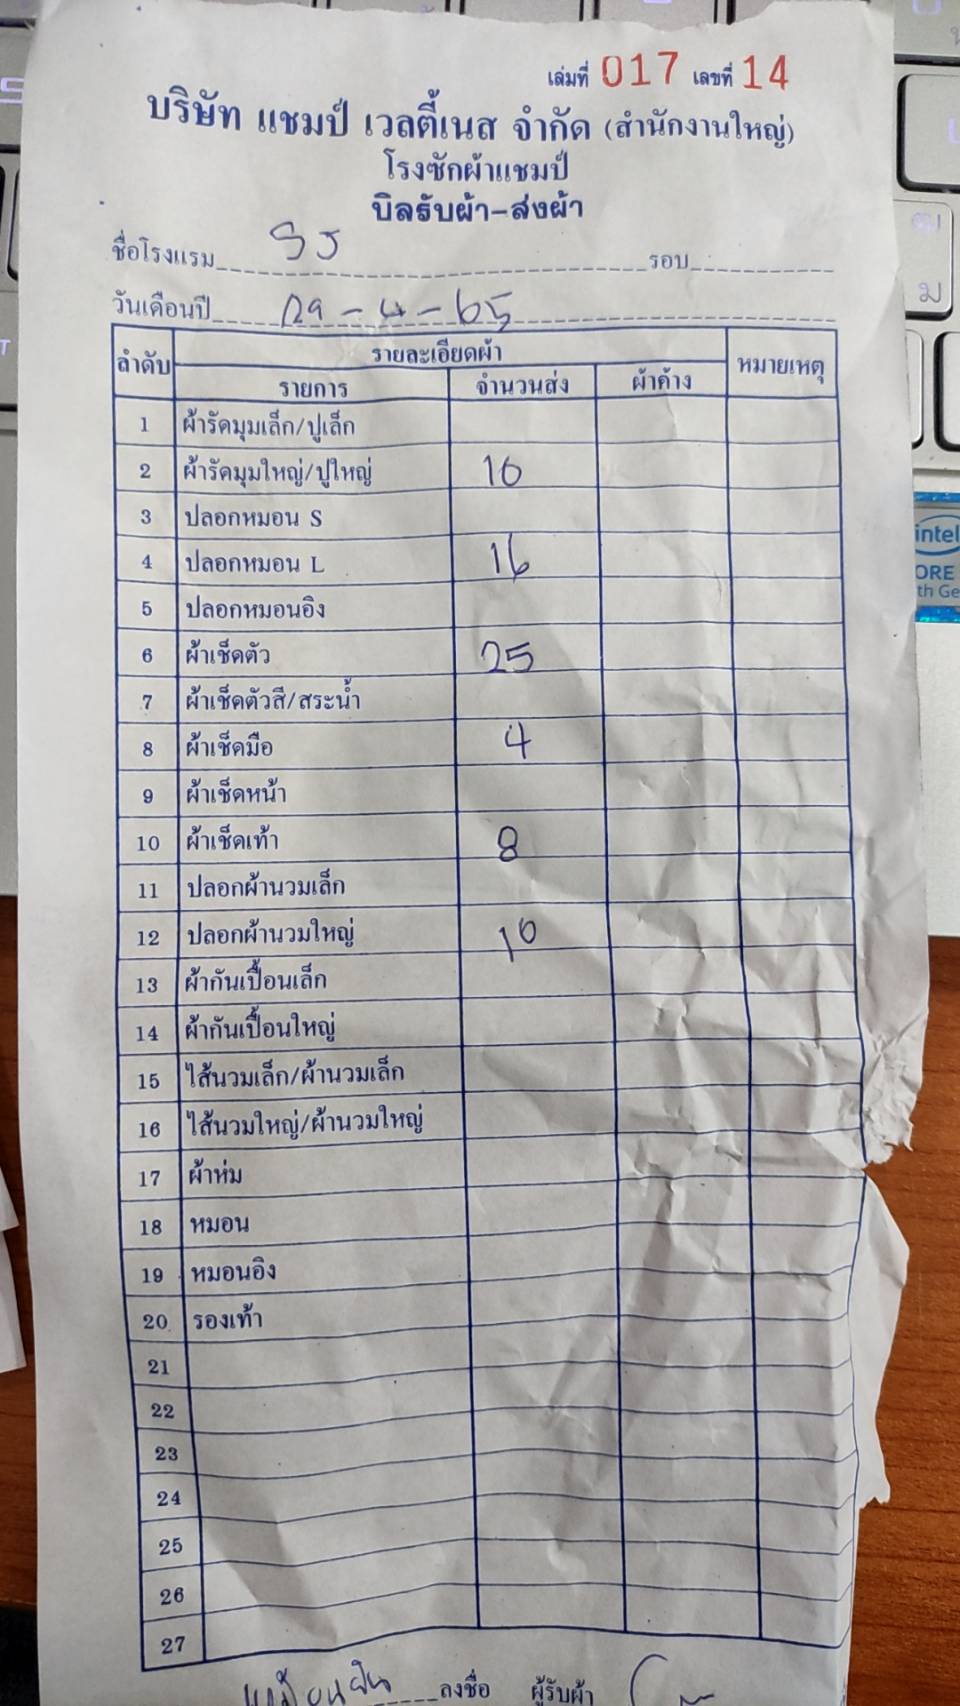 เล่มที่ 017 เลขที่ 14
บริษัท แชมป์ เวลตี้เนส จำกัด (สำนักงานใหญ่)
โรงซักผ้าแชมป์
บิลรับผ้า-ส่งผ้า
ชื่อโรงแรม SJ รอบ
วันเดือนปี 29-4-65
ลำดับ รายละเอียดผ้า หมายเหตุ
รายการ จำนวนส่ง ผ้าค้าง
1 ผ้ารัดมุมเล็ก/ปูเล็ก
2 ผ้ารัดมุมใหญ่/ปูใหญ่ 10
3 ปลอกหมอน S
4 ปลอกหมอน L 16
5 ปลอกหมอนอิง
6 ผ้าเช็ดตัว 25
7 ผ้าเช็ดตัวสี/สระน้ำ
8 ผ้าเช็ดมือ 4
9 ผ้าเช็ดหน้า
10 ผ้าเช็ดเท้า 8
11 ปลอกผ้านวมเล็ก
12 ปลอกผ้านวมใหญ่ 10
13 ผ้ากันเปื้อนเล็ก
14 ผ้ากันเปื้อนใหญ่
15 ไส้นวมเล็ก/ผ้านวมเล็ก
16 ไส้นวมใหญ่/ผ้านวมใหญ่
17 ผ้าห่ม
18 หมอน
19 หมอนอิง
20 รองเท้า
21
22
23
24
25
26
27
ลงชื่อ ผู้รับผ้า
intel